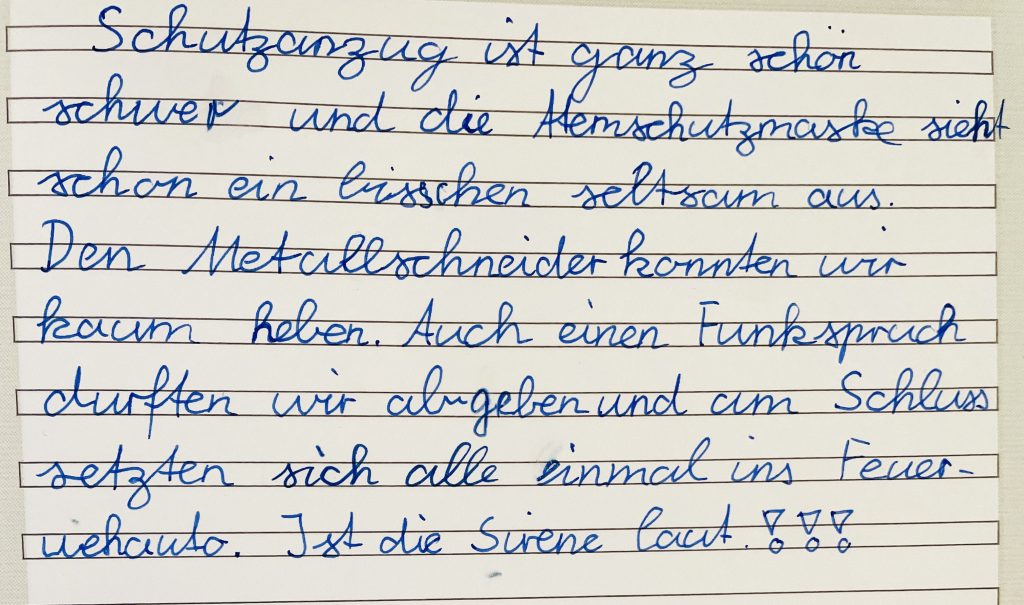 Schutzanzug ist ganz schön
schwer und die Atemschutzmaske sieht
schon ein bisschen seltsam aus.
Den Metallschneider konnten wir
kaum heben. Auch einen Funkspruch
durften wir abgeben und am Schluss
setzten sich alle einmal ins Feuer-
wehauto. Ist die Sirene laut!!!